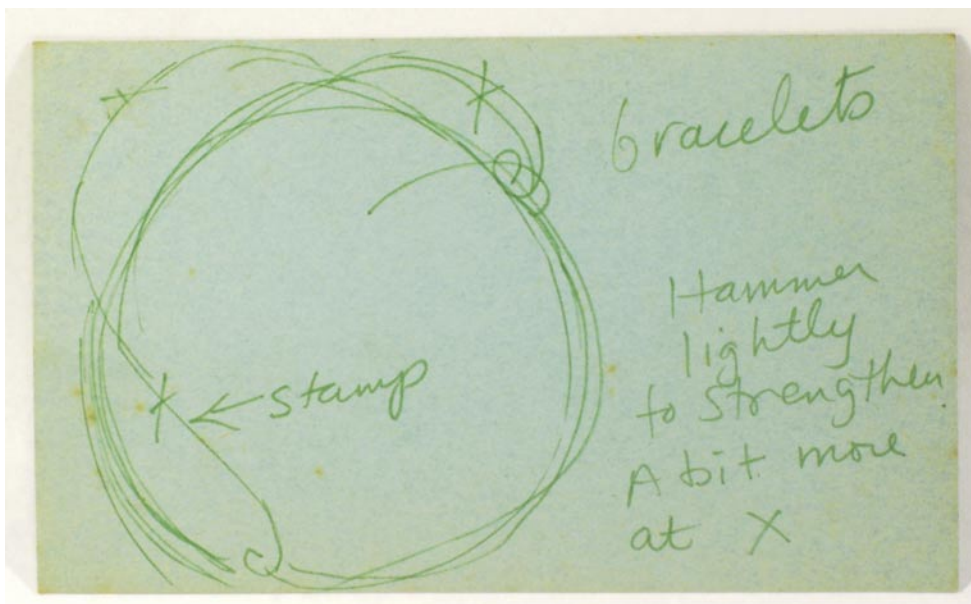 bracelets
Hammer
lightly
← stamp
to strengthen
A bit more
at X